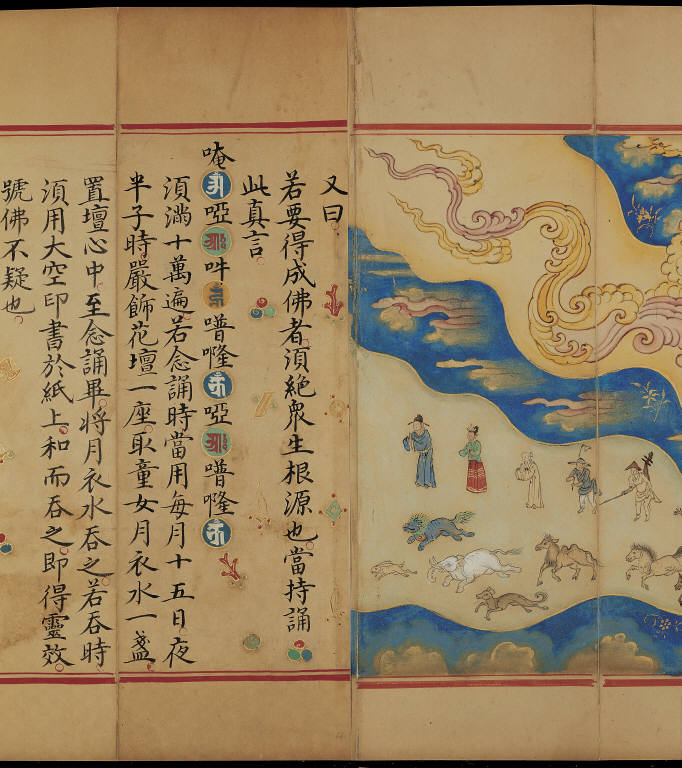 又曰
若要得成佛者須絕衆生根源也當持誦
此真言
唵 啞 吽 啞
須滿十萬遍若念誦時當用每月十五日夜
半子時嚴飾花壇一座取童女月衣水一盞
置壇心中至念誦畢將月衣水吞之若吞時
須用大空印書於紙上和而吞之即得靈效
號佛不疑也